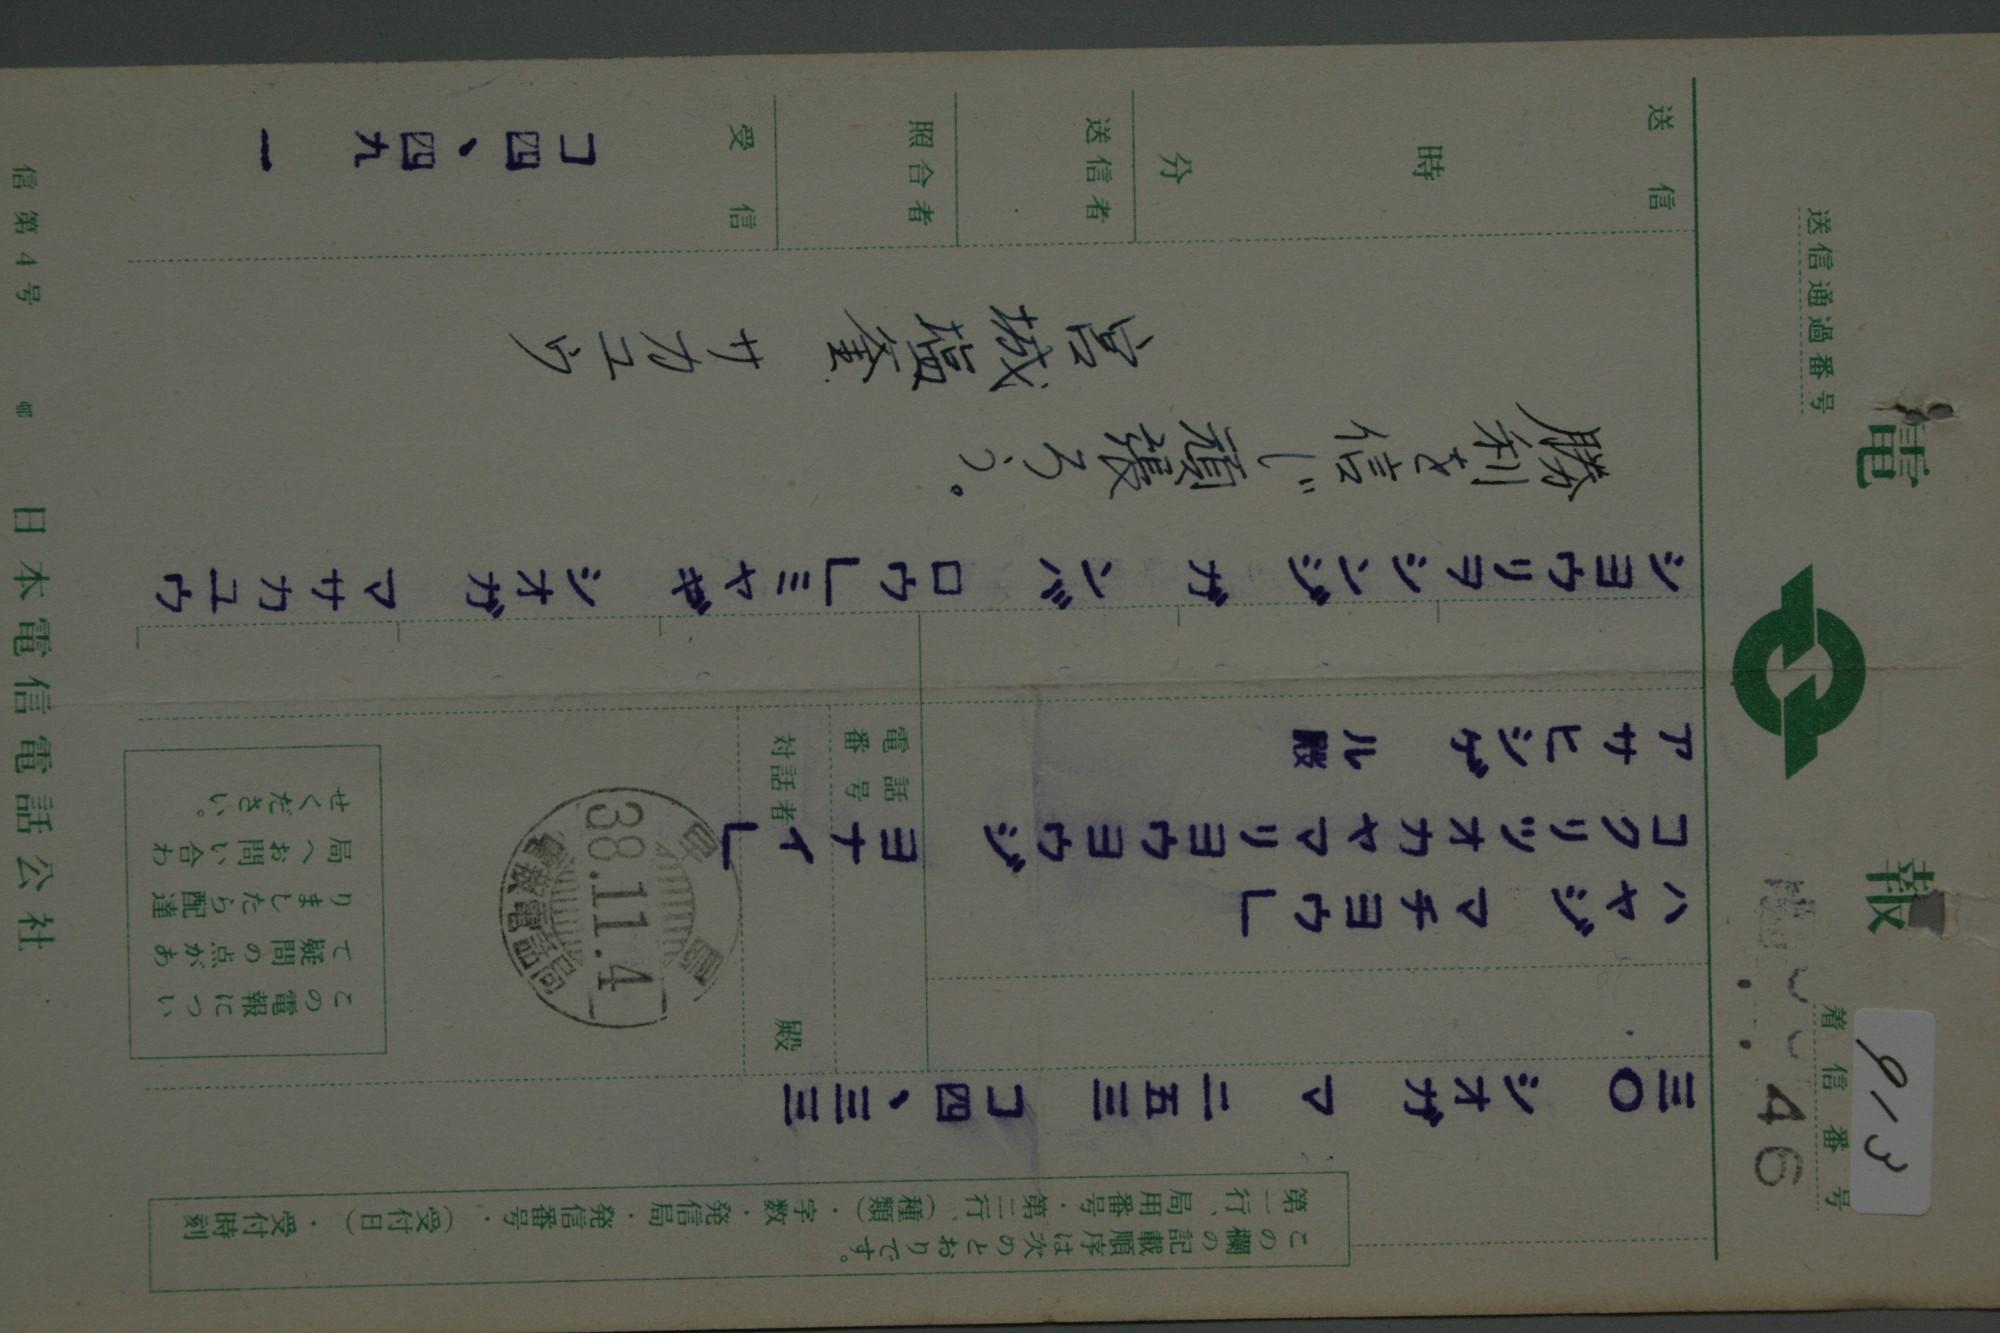 電報
送信通過番号
着信番号
913
46
この欄の記載順序は次のとおりです。
第一行、局用番号・第二行、(種類)・字数・発信局・発信番号・(受付日)・受付時刻
三〇 シオガマ 二五三 コ四、三三
ハヤジマチヨウ」
コクリツオカヤマリヨウヨウジヨナイ」
アサヒシゲル殿
電話番号
対話者
殿
38.11.4
この電報について疑問の点がありましたら配達局へお問い合わせください。
シヨウリヲシンジガンバロウ」ミヤギシオガマサカユウ
勝利を信じ頑張ろう。
宮城塩釜 サカユウ
送信
時
分
送信者
照合者
受信
コ四、四九
一
信第4号
日本電信電話公社